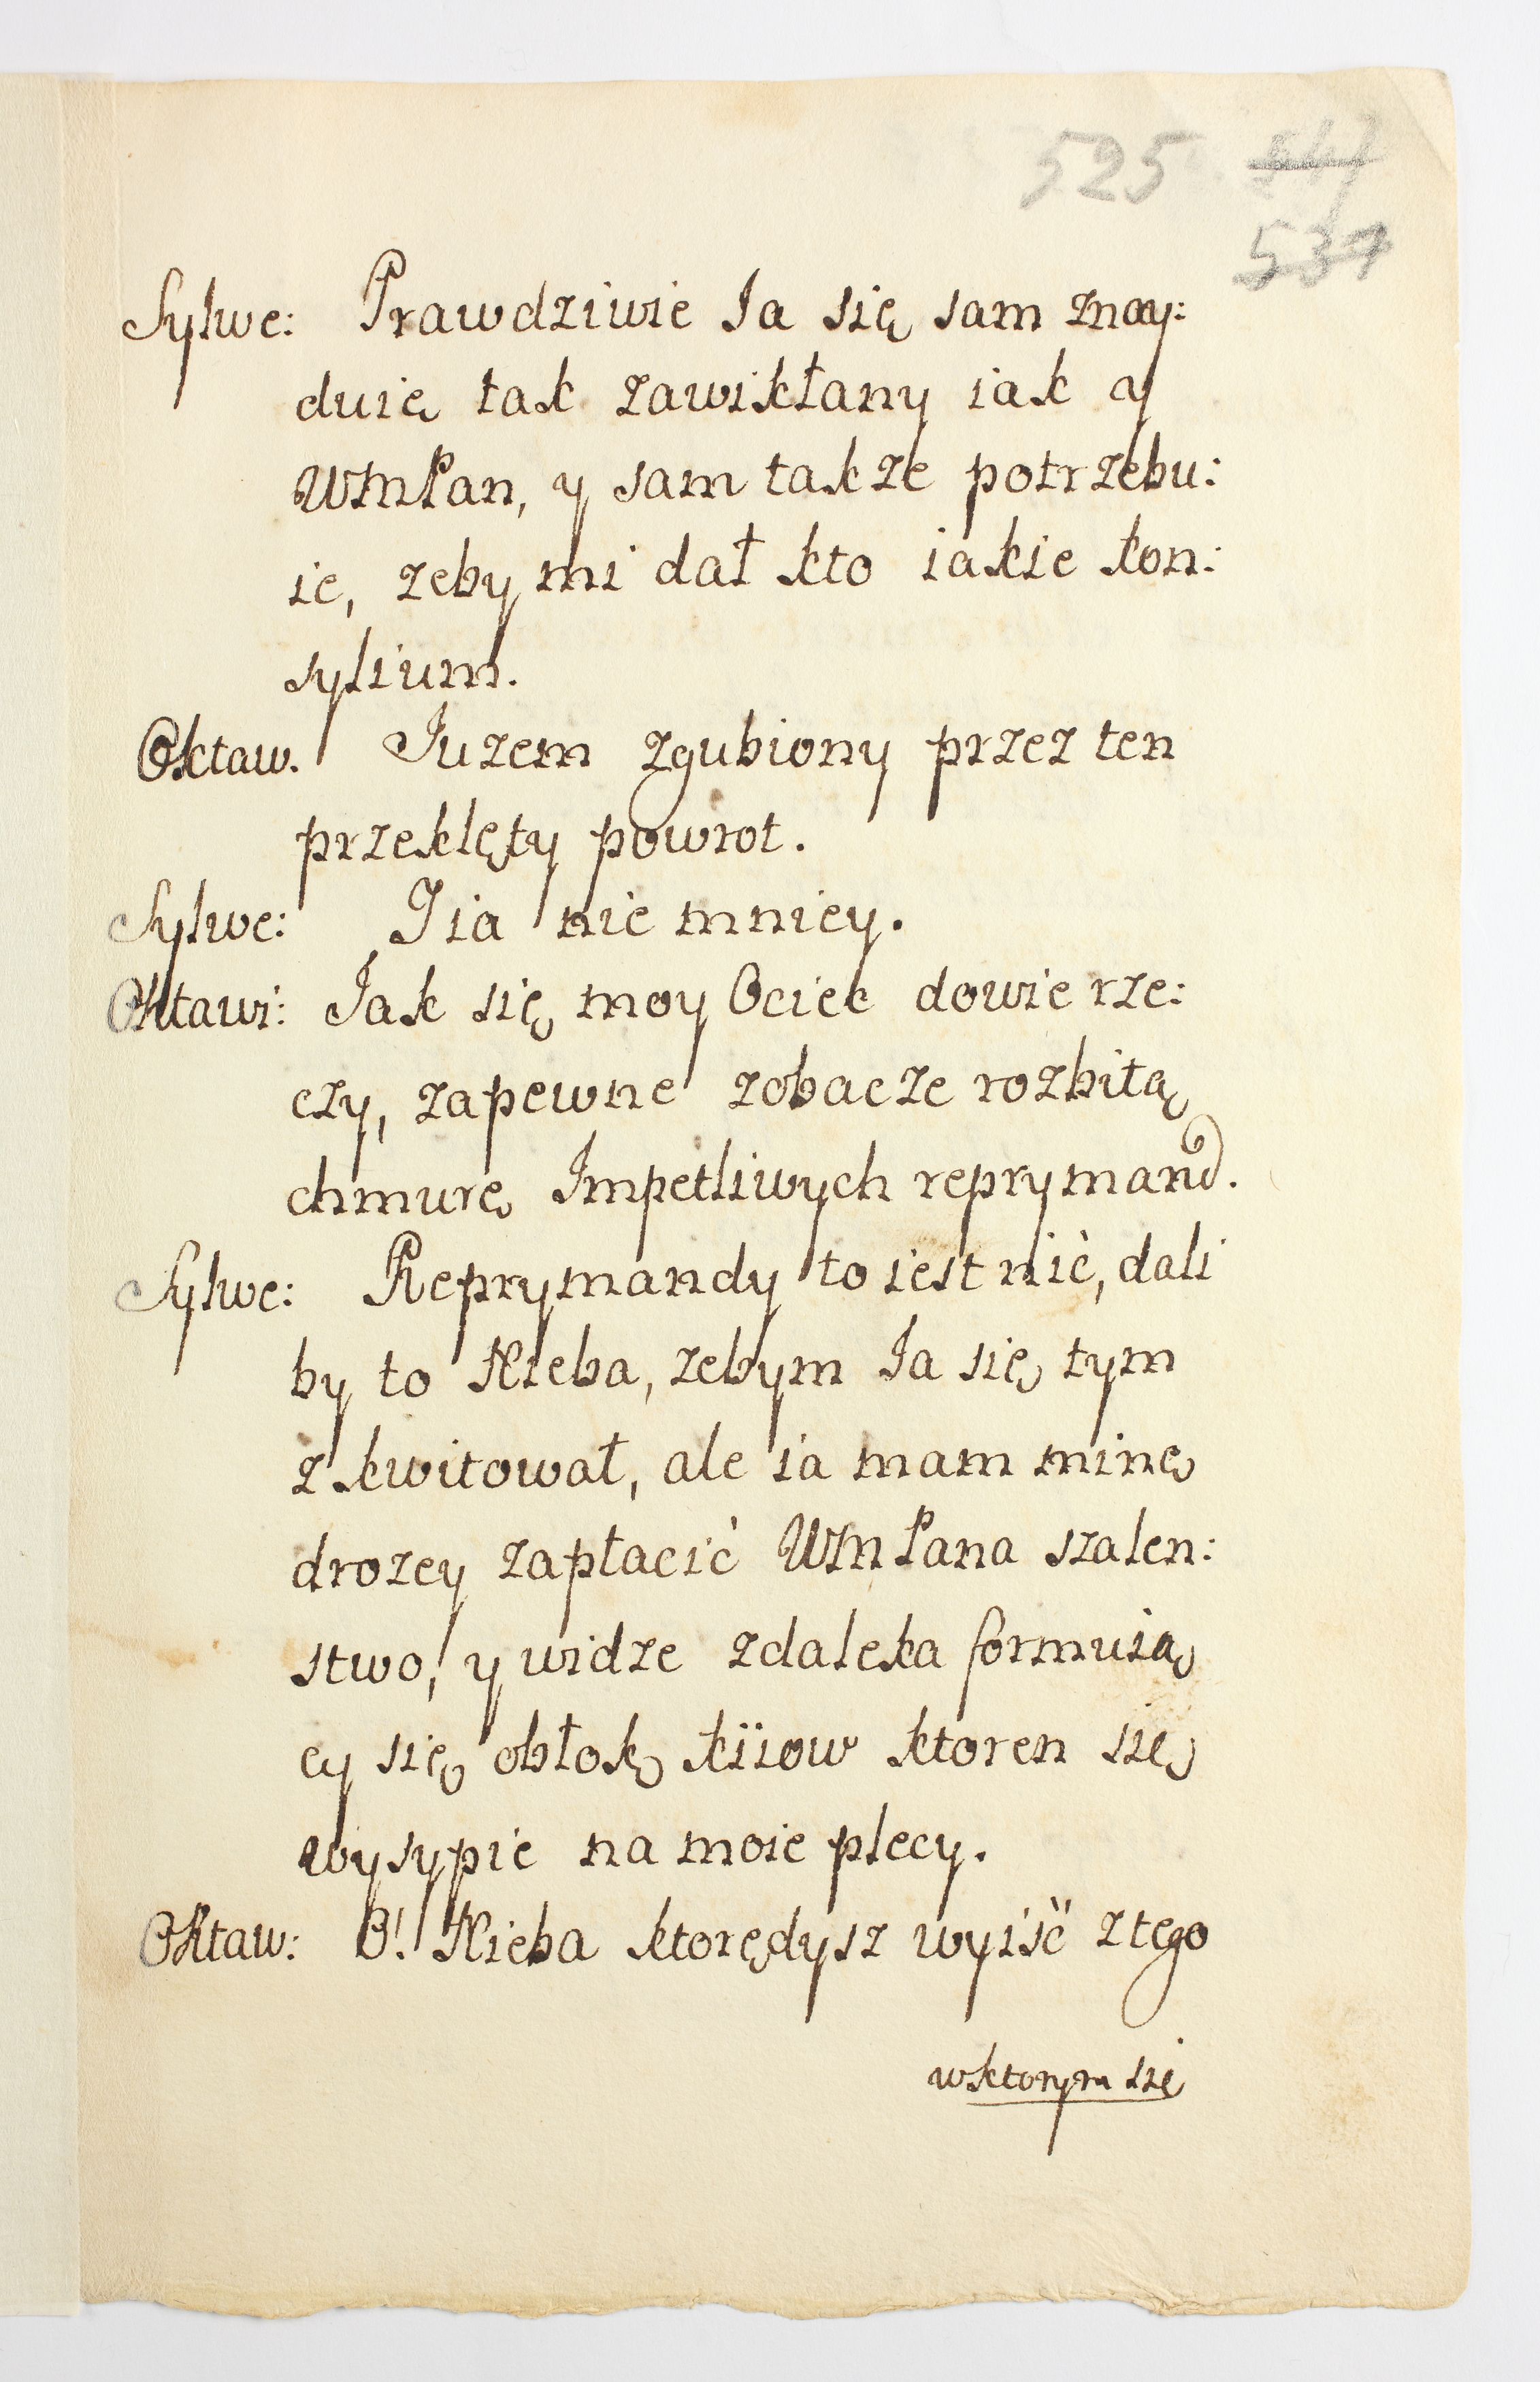 525
537
Sylwe: Prawdziwie Ia się sam znay:
duię tak zawikłany iak y
WMPan, y sam takze potrzebu:
ie, zeby mi dał kto iakie kon:
sylium.
Oktaw. Iuzem zgubiony przez ten
przeklęty powrot.
Sylwe: I ia nie mniey.
Oktawi: Iak się moy Ociec dowie rze:
czy, zapewne zobacze rozbitą
chmurę Impetliwych reprymand.
Sylwe: Reprymandy to iest nić, dali
by to Nieba, zebym Ia się tym
zkwitował, ale ia mam minę
drozey zapłacić WMPana szalen:
stwo, y widze zdaleka formuią
cy się obłok kiiow ktoren się
wysypie na moie plecy.
Oktaw: O! Nieba ktorędysz wyiść ztego
wktorym się